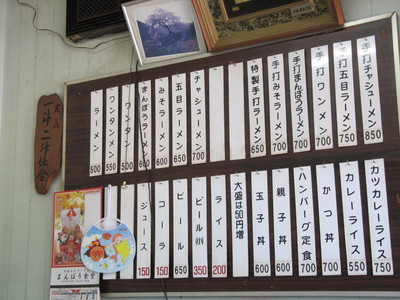 手打チャシューメン 850
手打五目ラーメン 750
手打ワンメン 700
手打まんぼうラーメン 700
手打みそラーメン 700
特製手打ラーメン 650
チャシューメン 700
五目ラーメン 650
みそラーメン 600
まんぼうラーメン 600
ワンタン 500
ワンタンメン 550
ラーメン 500
カツカレーライス 750
カレーライス 550
かつ丼 700
ハンバーグ定食 700
親子丼 600
玉子丼 600
大盛は50円増
ライス 200
ビール 350
ビール 650
コーラ 150
ジュース 150
まんぼう食堂